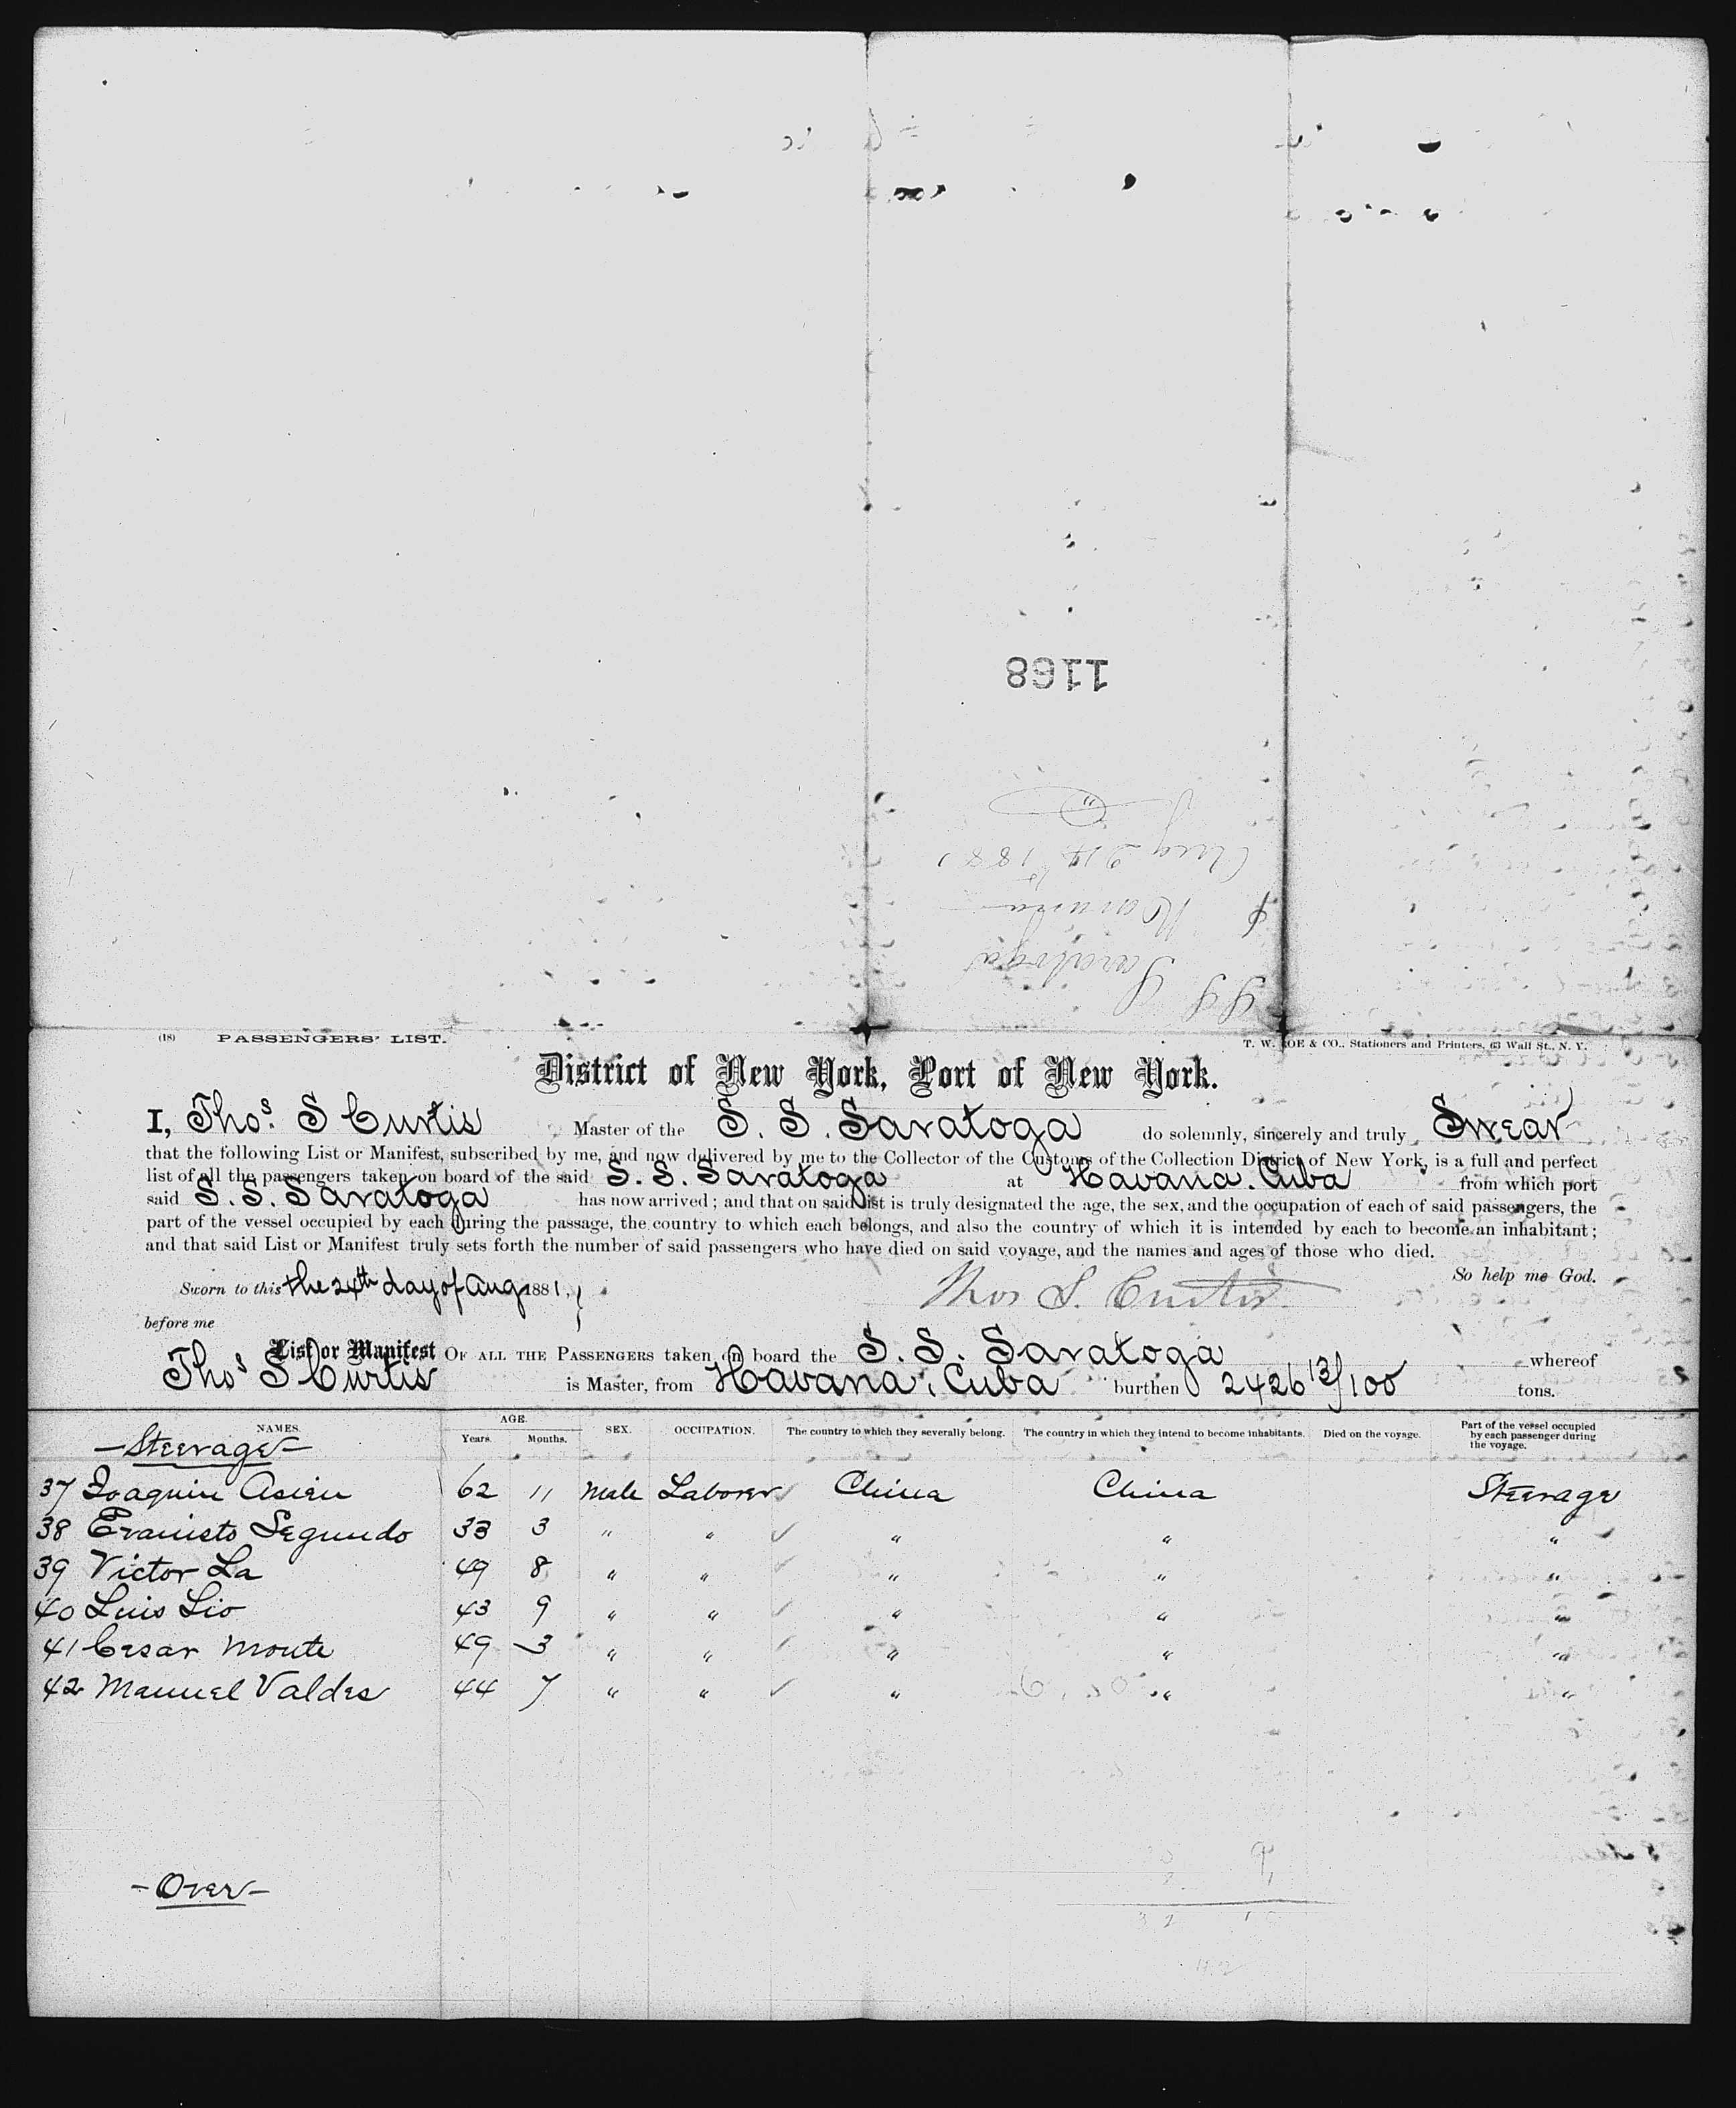 1168
S S Saratoga
Havana
Aug 24 1881
(18) PASSENGERS' LIST.
T. W. ROE & CO., Stationers and Printers, 63 Wall St., N. Y.
District of New York, Port of New York.
I, Thos. S Curtis Master of the S. S. Saratoga do solemnly, sincerely and truly Swear
that the following List or Manifest, subscribed by me, and now delivered by me to the Collector of the Customs of the Collection District of New York, is a full and perfect
list of all the passengers taken on board of the said S. S. Saratoga at Havana. Cuba from which port
said S. S. Saratoga has now arrived; and that on said list is truly designated the age, the sex, and the occupation of each of said passengers, the
part of the vessel occupied by each during the passage, the country to which each belongs, and also the country of which it is intended by each to become an inhabitant;
and that said List or Manifest truly sets forth the number of said passengers who have died on said voyage, and the names and ages of those who died.
So help me God.
Sworn to this the 24th day of Aug 1881,
Thos S. Curtis
before me
List or Manifest OF ALL THE PASSENGERS taken on board the S. S. Saratoga whereof
Thos S Curtis is Master, from Havana, Cuba burthen 2426 13/100 tons.
NAMES. AGE. Years. Months. SEX. OCCUPATION. The country to which they severally belong. The country in which they intend to become inhabitants. Died on the voyage. Part of the vessel occupied by each passenger during the voyage.
- Steerage -
37 Joaquin Asien 62 11 Male Laborer China China Steerage
38 Evaristo Segundo 33 3 " " " " "
39 Victor La 49 8 " " " " "
40 Luis Lio 43 9 " " " " "
41 Cesar Monte 49 3 " " " " "
42 Manuel Valdes 44 7 " " " " "
- Over -